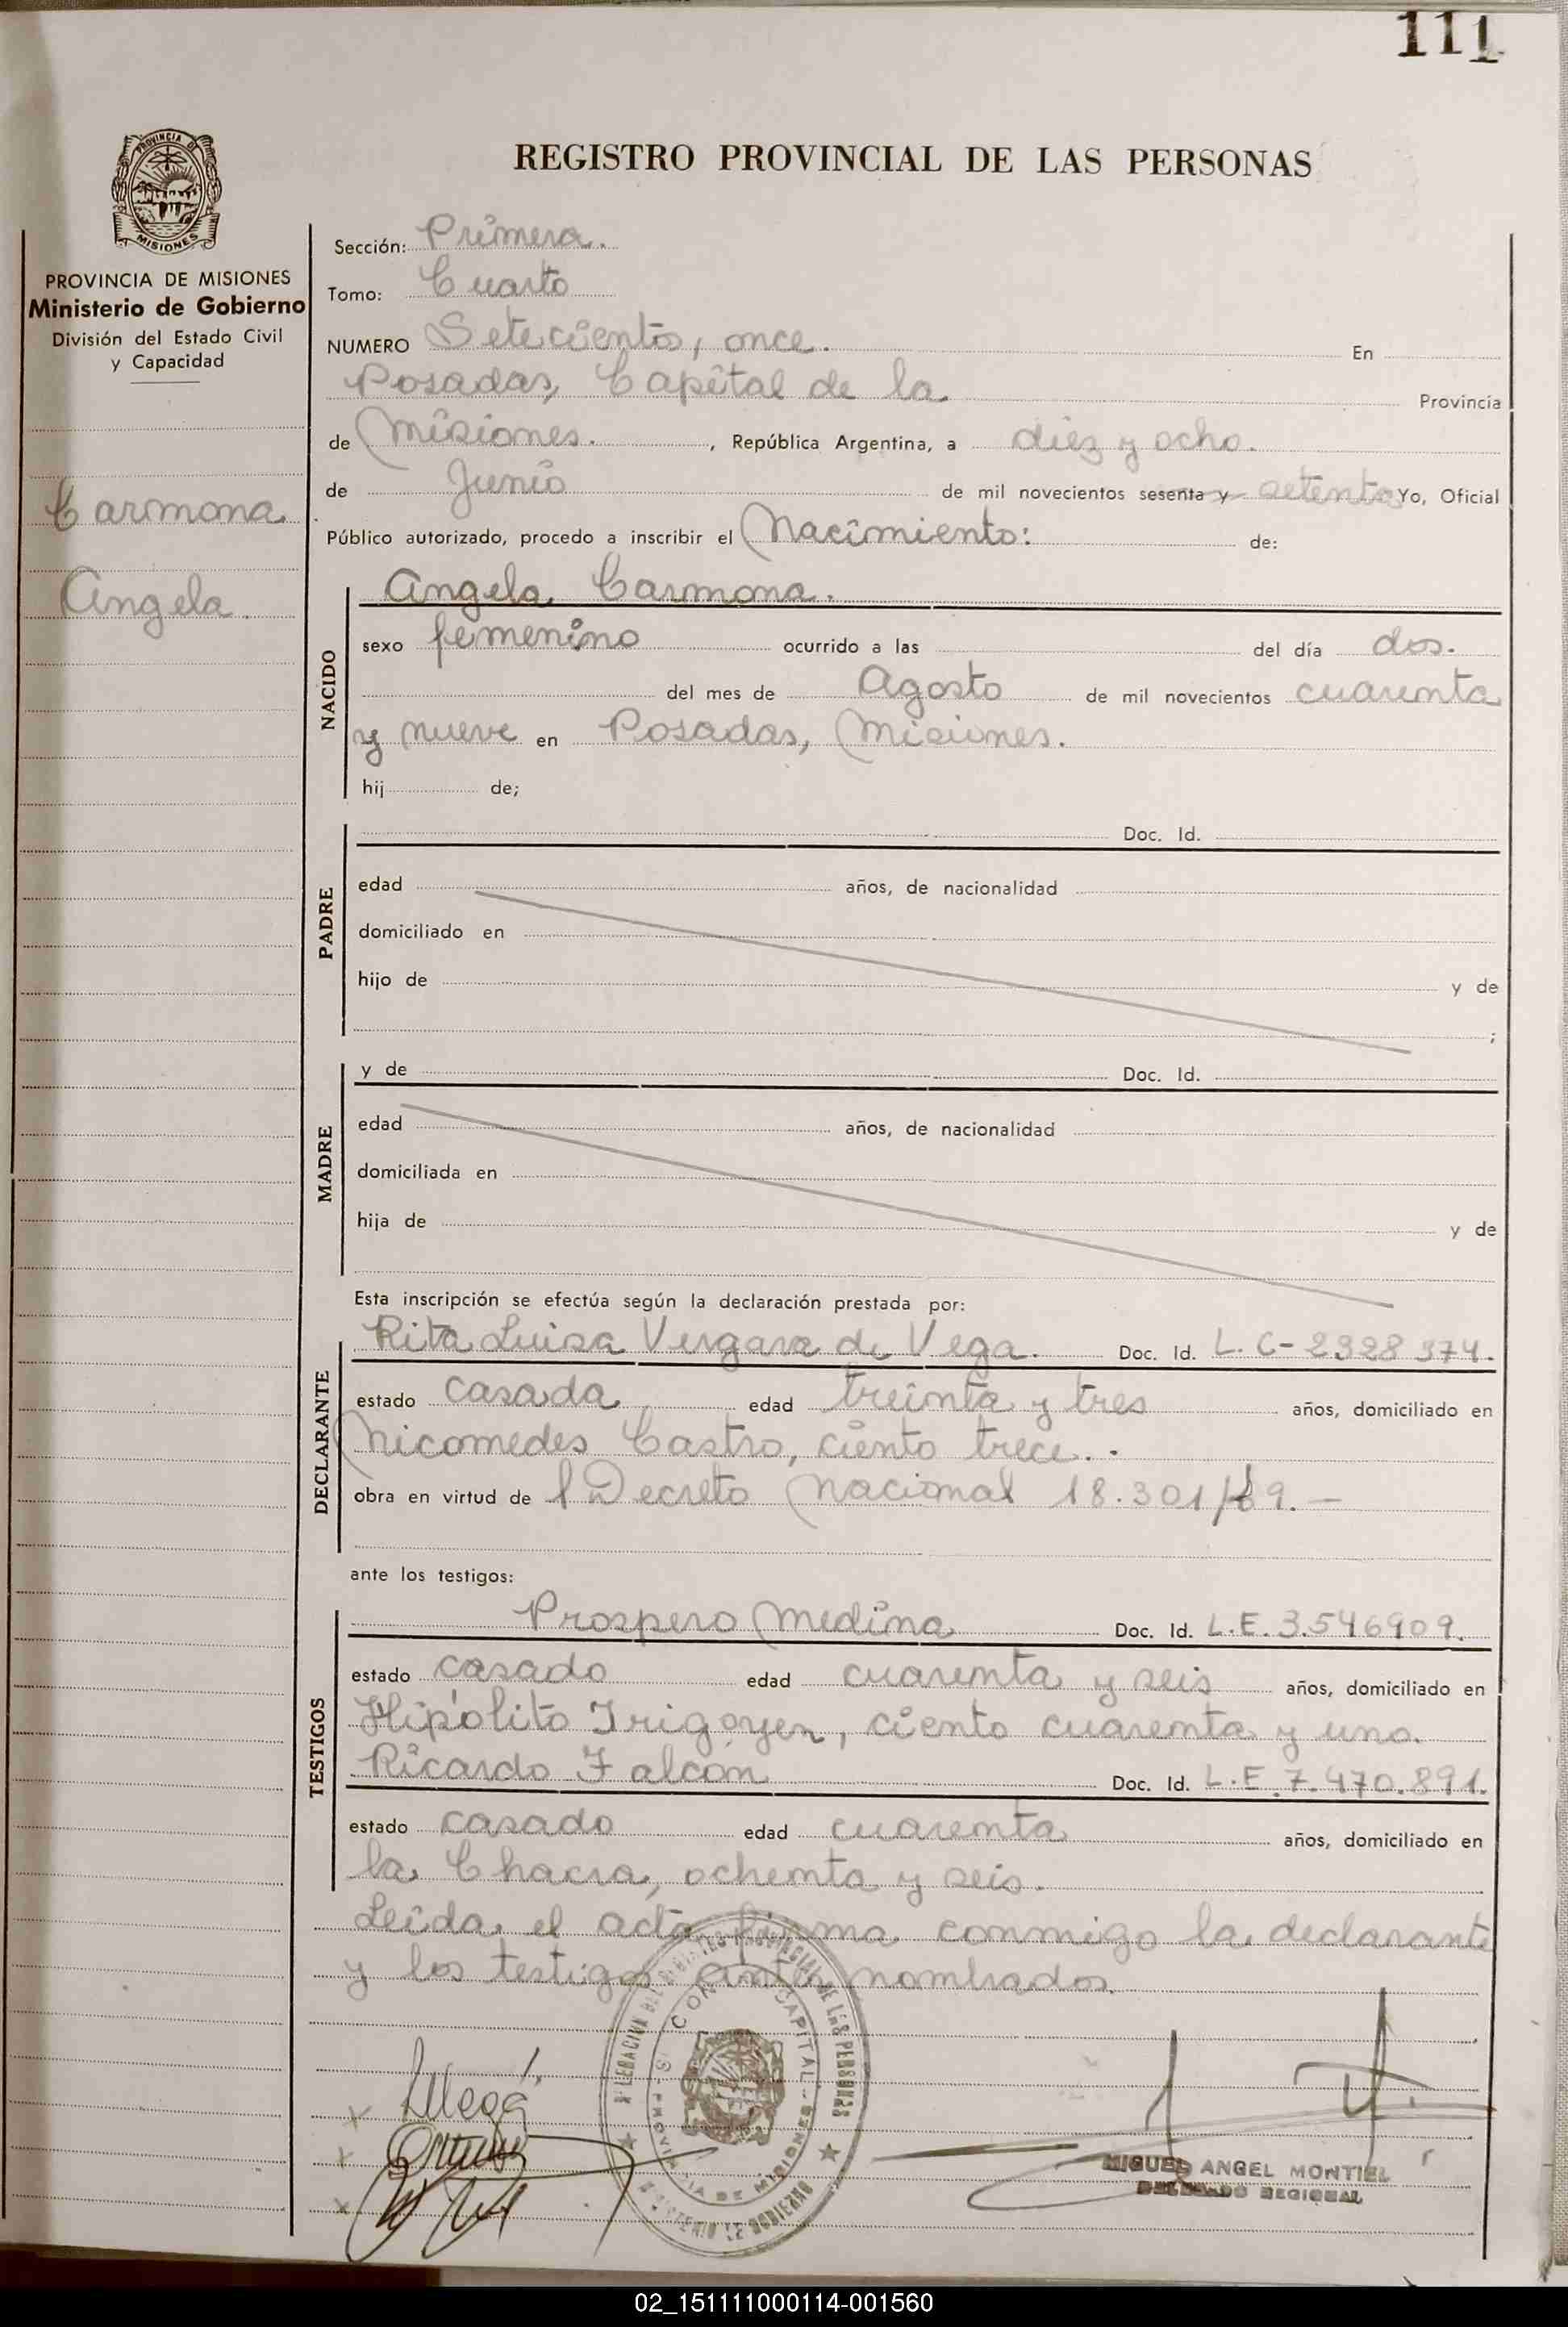 111
REGISTRO PROVINCIAL DE LAS PERSONAS
PROVINCIA DE MISIONES
PROVINCIA DE MISIONES
Ministerio de Gobierno
División del Estado Civil
y Capacidad
Carmona
Angela.
Sección: Primera.
Tomo: Cuarto
NUMERO Setecientos, once. En
Posadas, Capital de la Provincia
de Misiones. , República Argentina, a diez y ocho.
de Junio de mil novecientos sesenta y setenta Yo, Oficial
Público autorizado, procedo a inscribir el Nacimiento: de:
NACIDO
Angela Carmona.
sexo femenino ocurrido a las del día dos.
del mes de Agosto de mil novecientos cuarenta
y nueve en Posadas, Misiones.
hij de;
PADRE
Doc. Id.
edad años, de nacionalidad
domiciliado en
hijo de y de
;
MADRE
y de Doc. Id.
edad años, de nacionalidad
domiciliada en
hija de y de
Esta inscripción se efectúa según la declaración prestada por:
DECLARANTE
Rita Luisa Vergara de Vega. Doc. Id. L. C-2328374.
estado casada edad treinta y tres años, domiciliado en
Nicomedes Castro, ciento trece.
obra en virtud de l Decreto Nacional 18.301/69.-
ante los testigos:
TESTIGOS
Prospero Medina Doc. Id. L.E. 3.546909.
estado casado edad cuarenta y seis años, domiciliado en
Hipólito Irigoyen, ciento cuarenta y uno.
Ricardo Falcón Doc. Id. L.E 7.470.891.
estado casado edad cuarenta años, domiciliado en
la Chacra, ochenta y seis.
Leida el acta firma conmigo la declarante
y los testigos antes nombrados.
MIGUEL ANGEL MONTIEL
DELEGADO REGIONAL
02_151111000114-001560